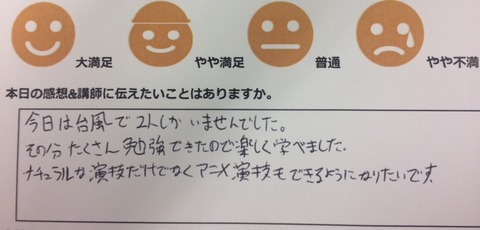 大満足 やや満足 普通 やや不満
本日の感想&講師に伝えたいことはありますか。
今日は台風で2人しかいませんでした。
その分たくさん勉強できたので楽しく学べました.
ナチュラルな演技だけでなくアニメ演技もできるようになりたいです.